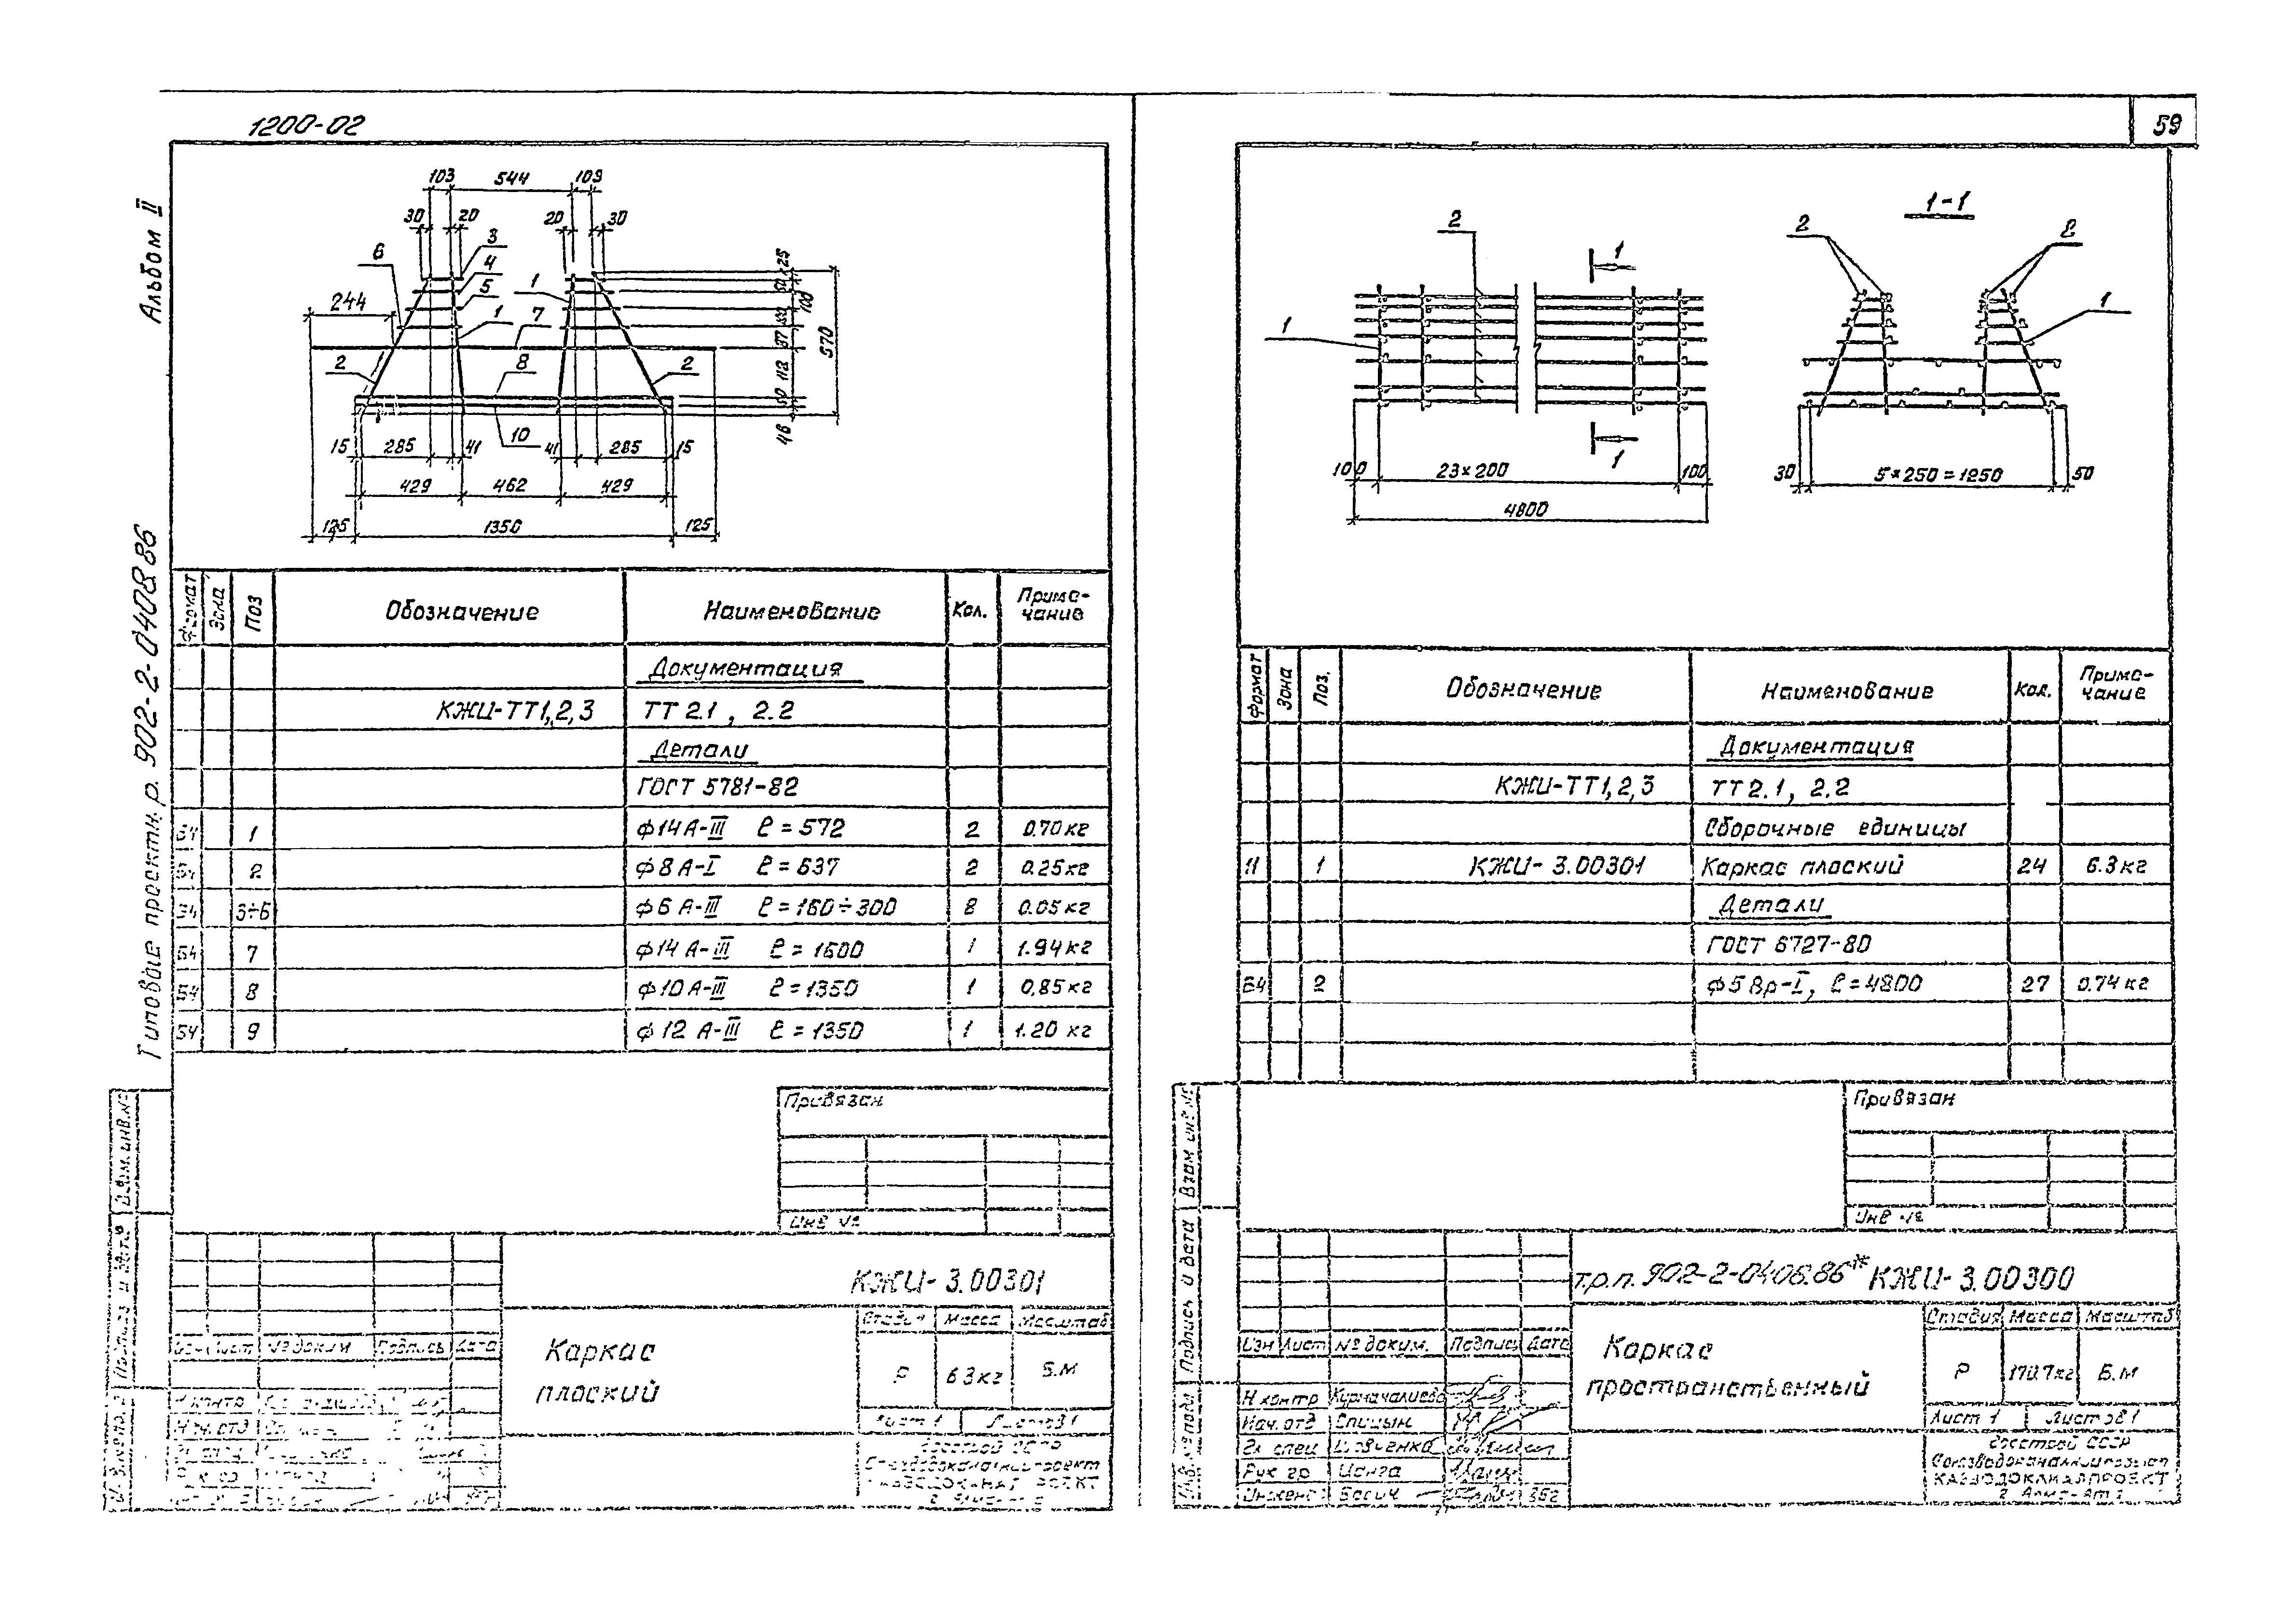 1200-02
59
Альбом II
Типовые проектн. р. 902-2-0408.86
103 544 103
30 20 20 30
3
6
4
5
1
244
1
7
2
8
2
25
50
100
97
112
50
46
570
10
15 285 41 41 285 15
429 462 429
125 1350 125
Формат Зона Поз Обозначение Наименование Кол. Приме-
чание
Документация
КЖИ-ТТ1,2,3 ТТ 2.1, 2.2
Детали
ГОСТ 5781-82
Б4 1 ф14А-III ℓ=572 2 0.70кг
Б4 2 ф8А-I ℓ=637 2 0.25кг
Б4 3÷6 ф6А-III ℓ=160÷300 8 0.05кг
Б4 7 ф14А-III ℓ=1600 1 1.94кг
Б4 8 ф10А-III ℓ=1350 1 0,85кг
Б4 9 ф12 А-III ℓ=1350 1 1.20 кг
Привязан
Инв №
Взам. инв. №
Подпись и дата
КЖИ-3.00301
Изм Лист № доким Подпись Дата
Каркас
плоский
Стадия Масса Масштаб
Р 6 3кг Б.М
Лист 1 Листов 1
Н контр
Нач. отд
Госстрой СССР
Союзводоканалпроект
1-1
2
1
1
2
2
1
1
100 23×200 100
4800
30 5×250=1250 50
Формат Зона Поз. Обозначение Наименование Кол. Приме-
чание
Документация
КЖИ-ТТ1,2,3 ТТ 2.1, 2.2
Сборочные единицы
11 1 КЖИ-3.00301 Каркас плоский 24 6.3кг
Детали
ГОСТ 6727-80
Б4 2 ф5Вр-I, ℓ=4800 27 0.74кг
Привязан
Инв №
Взам инв №
Подпись и дата
Инв. № подл
т.р.п. 902-2-0406.86* КЖИ-3.00300
Изм Лист № доким. Подпись Дата
Каркас
пространственный
Стадия Масса Масштаб
Р 170.7кг Б.М
Лист 1 Листов 1
Н контр Курначалиева
Нач. отд Спицын
Гл спец Шовченко
Рук гр Цонга
Инженер Босич
Госстрой СССР
Союзводоканалпроект
КАЗВОДОКАНАЛПРОЕКТ
г. Алма-Ата